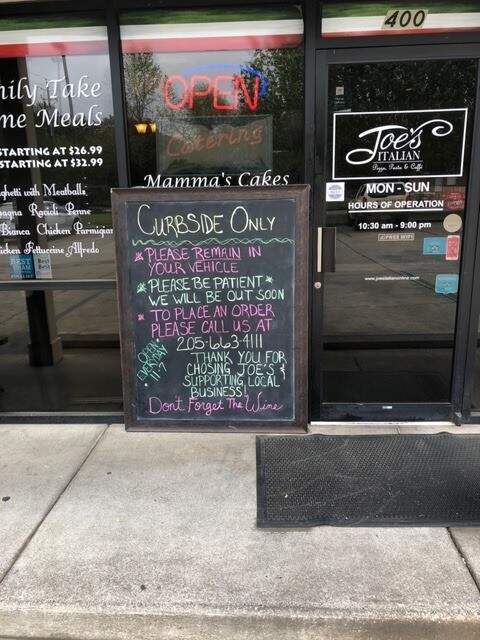 400
hily Take
me Meals
STARTING AT $26.99
STARTING AT $32.99
ghetti with Meatballs
Penne
Bianca Chicken Parmigian
icken Fettuccine Alfredo
OPEN
Catering
Mamma's Cakes
Joe's
ITALIAN
Pizza, Pasta & Caffé
MON - SUN
HOURS OF OPERATION
10:30 am - 9:00 pm
FREE WIFI
CURBSIDE ONLY
* PLEASE REMAIN IN
YOUR VEHICLE
* PLEASE BE PATIENT *
WE WILL BE OUT SOON
* TO PLACE AN ORDER
PLEASE CALL US AT
205-663-4111
OPEN
11-7
THANK YOU FOR
CHOSING JOE'S &
SUPPORTING LOCAL
BUSINESS!
Dont Forget The Wine